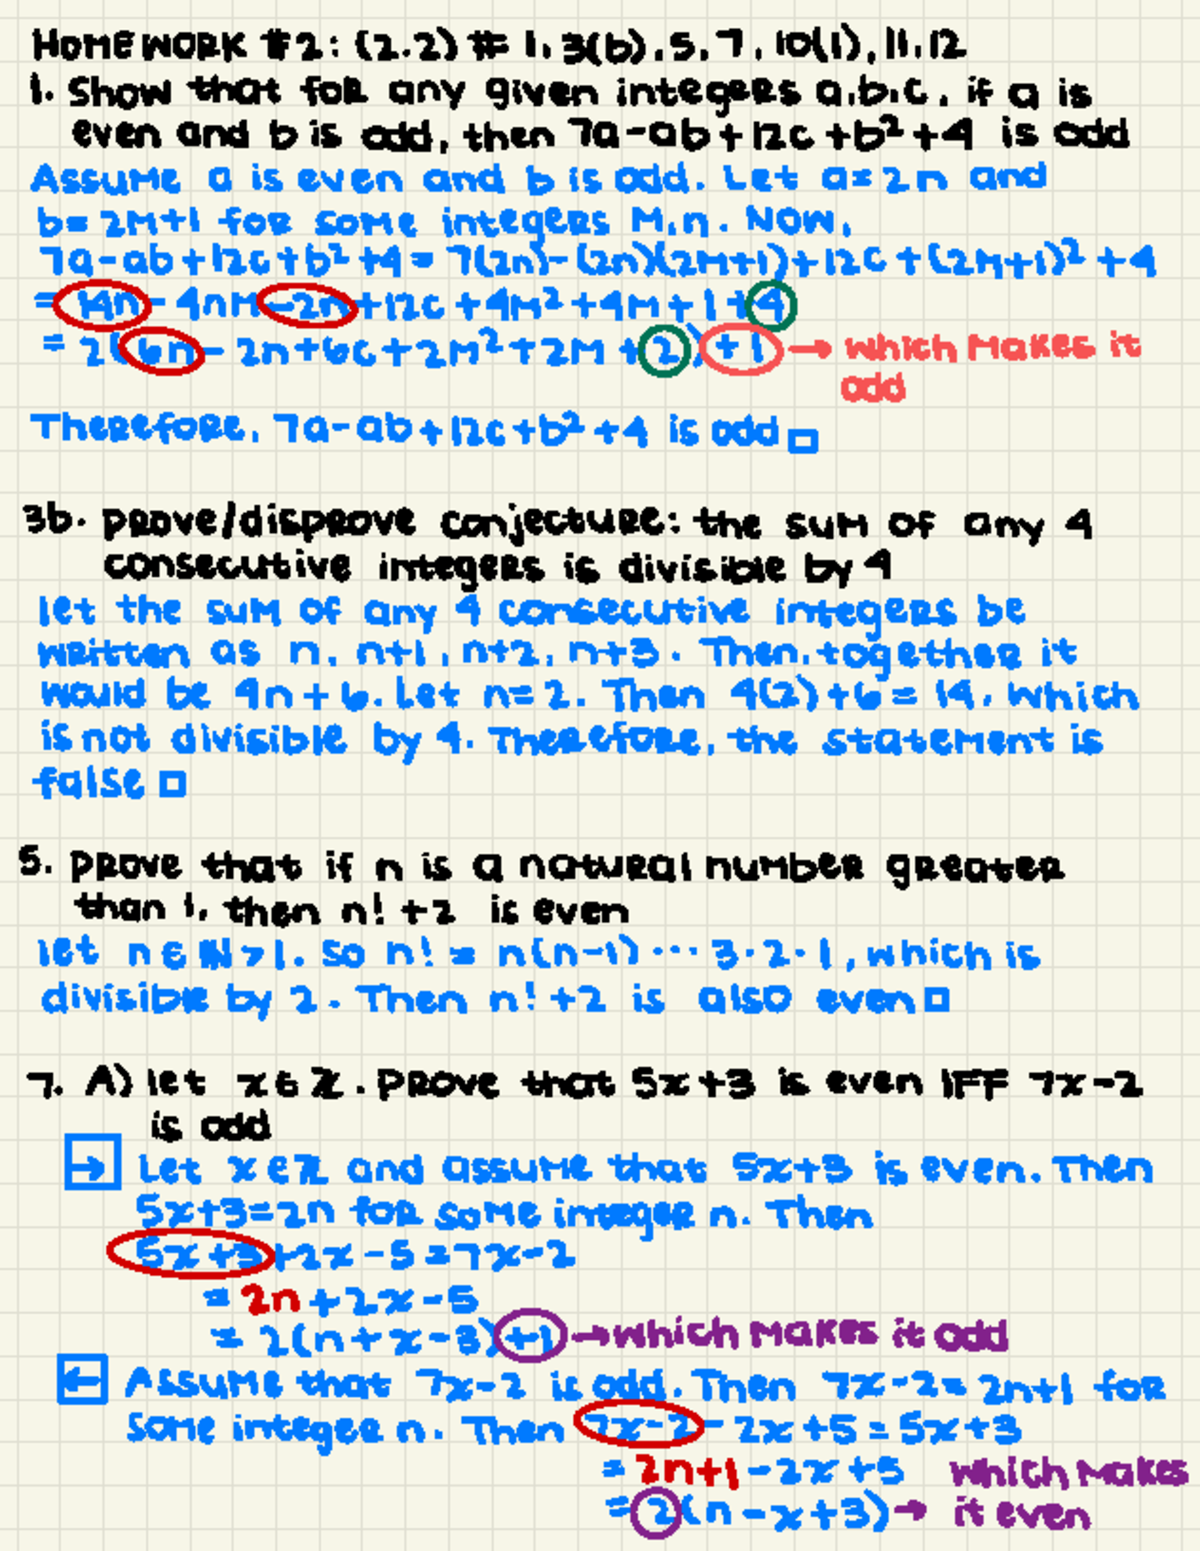 HOMEWORK #2: (2.2) # 1, 3(b), 5, 7, 10(1), 11, 12
1. Show that for any given integers a,b,c, if a is
even and b is odd, then 7a-ab+12c+b²+4 is odd
Assume a is even and b is odd. Let a=2n and
b=2m+1 for some integers m,n. Now,
7a-ab+12c+b²+4 = 7(2n)-(2n)(2m+1)+12c+(2m+1)²+4
= 14n-4nm-2n+12c+4m²+4m+1+4
= 2(6n-2n+6c+2m²+2m+2)+1 → which makes it
odd
Therefore, 7a-ab+12c+b²+4 is odd □
3b. prove/disprove conjecture: the sum of any 4
consecutive integers is divisible by 4
let the sum of any 4 consecutive integers be
written as n, n+1, n+2, n+3. Then, together it
would be 4n+6. Let n=2. Then 4(2)+6=14, which
is not divisible by 4. Therefore, the statement is
false □
5. prove that if n is a natural number greater
than 1, then n! +2 is even
let n∈ℕ>1. So n! = n(n-1)···3·2·1, which is
divisible by 2. Then n! +2 is also even □
7. A) let x∈ℤ. Prove that 5x+3 is even IFF 7x-2
is odd
→ Let x∈ℤ and assume that 5x+3 is even. Then
5x+3=2n for some integer n. Then
5x+3+2x-5=7x-2
= 2n+2x-5
= 2(n+x-3)+1 → which makes it odd
← Assume that 7x-2 is odd. Then 7x-2=2n+1 for
some integer n. Then 7x-2-2x+5=5x+3
= 2n+1-2x+5 which makes
= 2(n-x+3) → it even